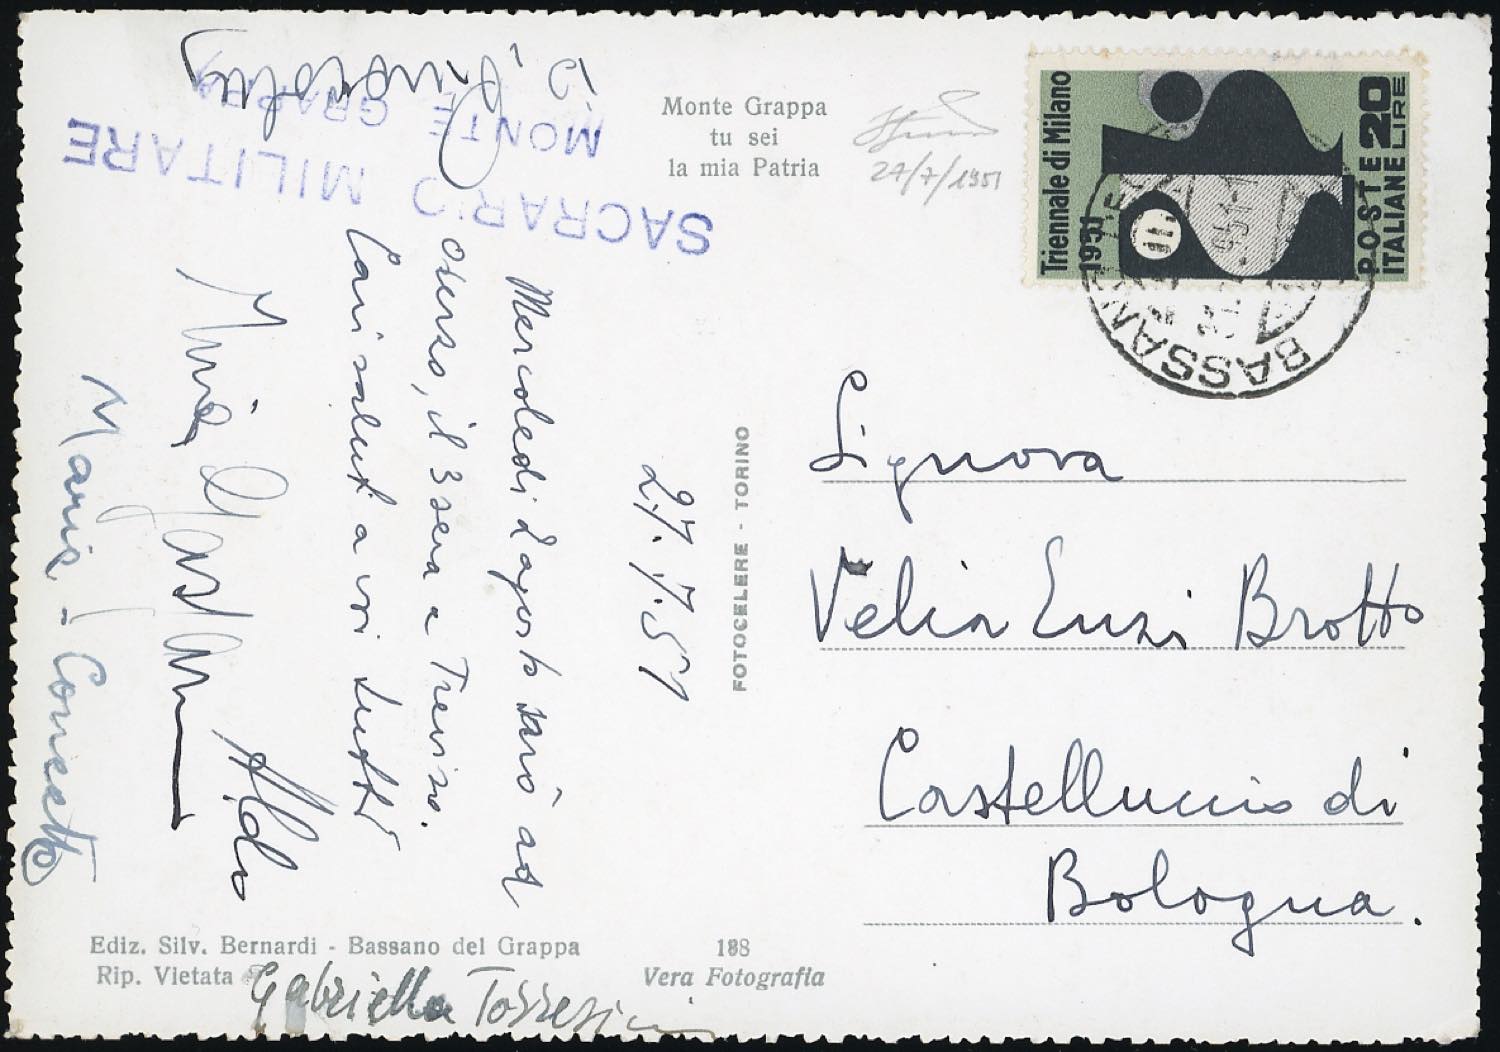 Monte Grappa
tu sei
la mia Patria
27/7/1951
Triennale di Milano
1951
POSTE
ITALIANE
LIRE
20
BASSANO
SACRARIO MILITARE
MONTE GRAPPA
27.7.51
Mercoledì 2 agosto sarò ad
il 3 sera a Treviso.
Cari saluti a voi tutti
Aldo
Maria
Gabriella
FOTOCELERE - TORINO
Signora
Velia Enzi Brotto
Castelluccio di
Bologna.
Ediz. Silv. Bernardi - Bassano del Grappa
Rip. Vietata
188
Vera Fotografia